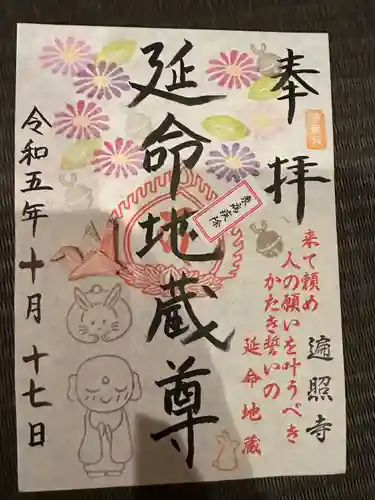 奉拝
来て頼め
人の願いを叶うべき
かたき誓いの
延命地蔵
遍照寺
延命地蔵尊
令和五年十月十七日